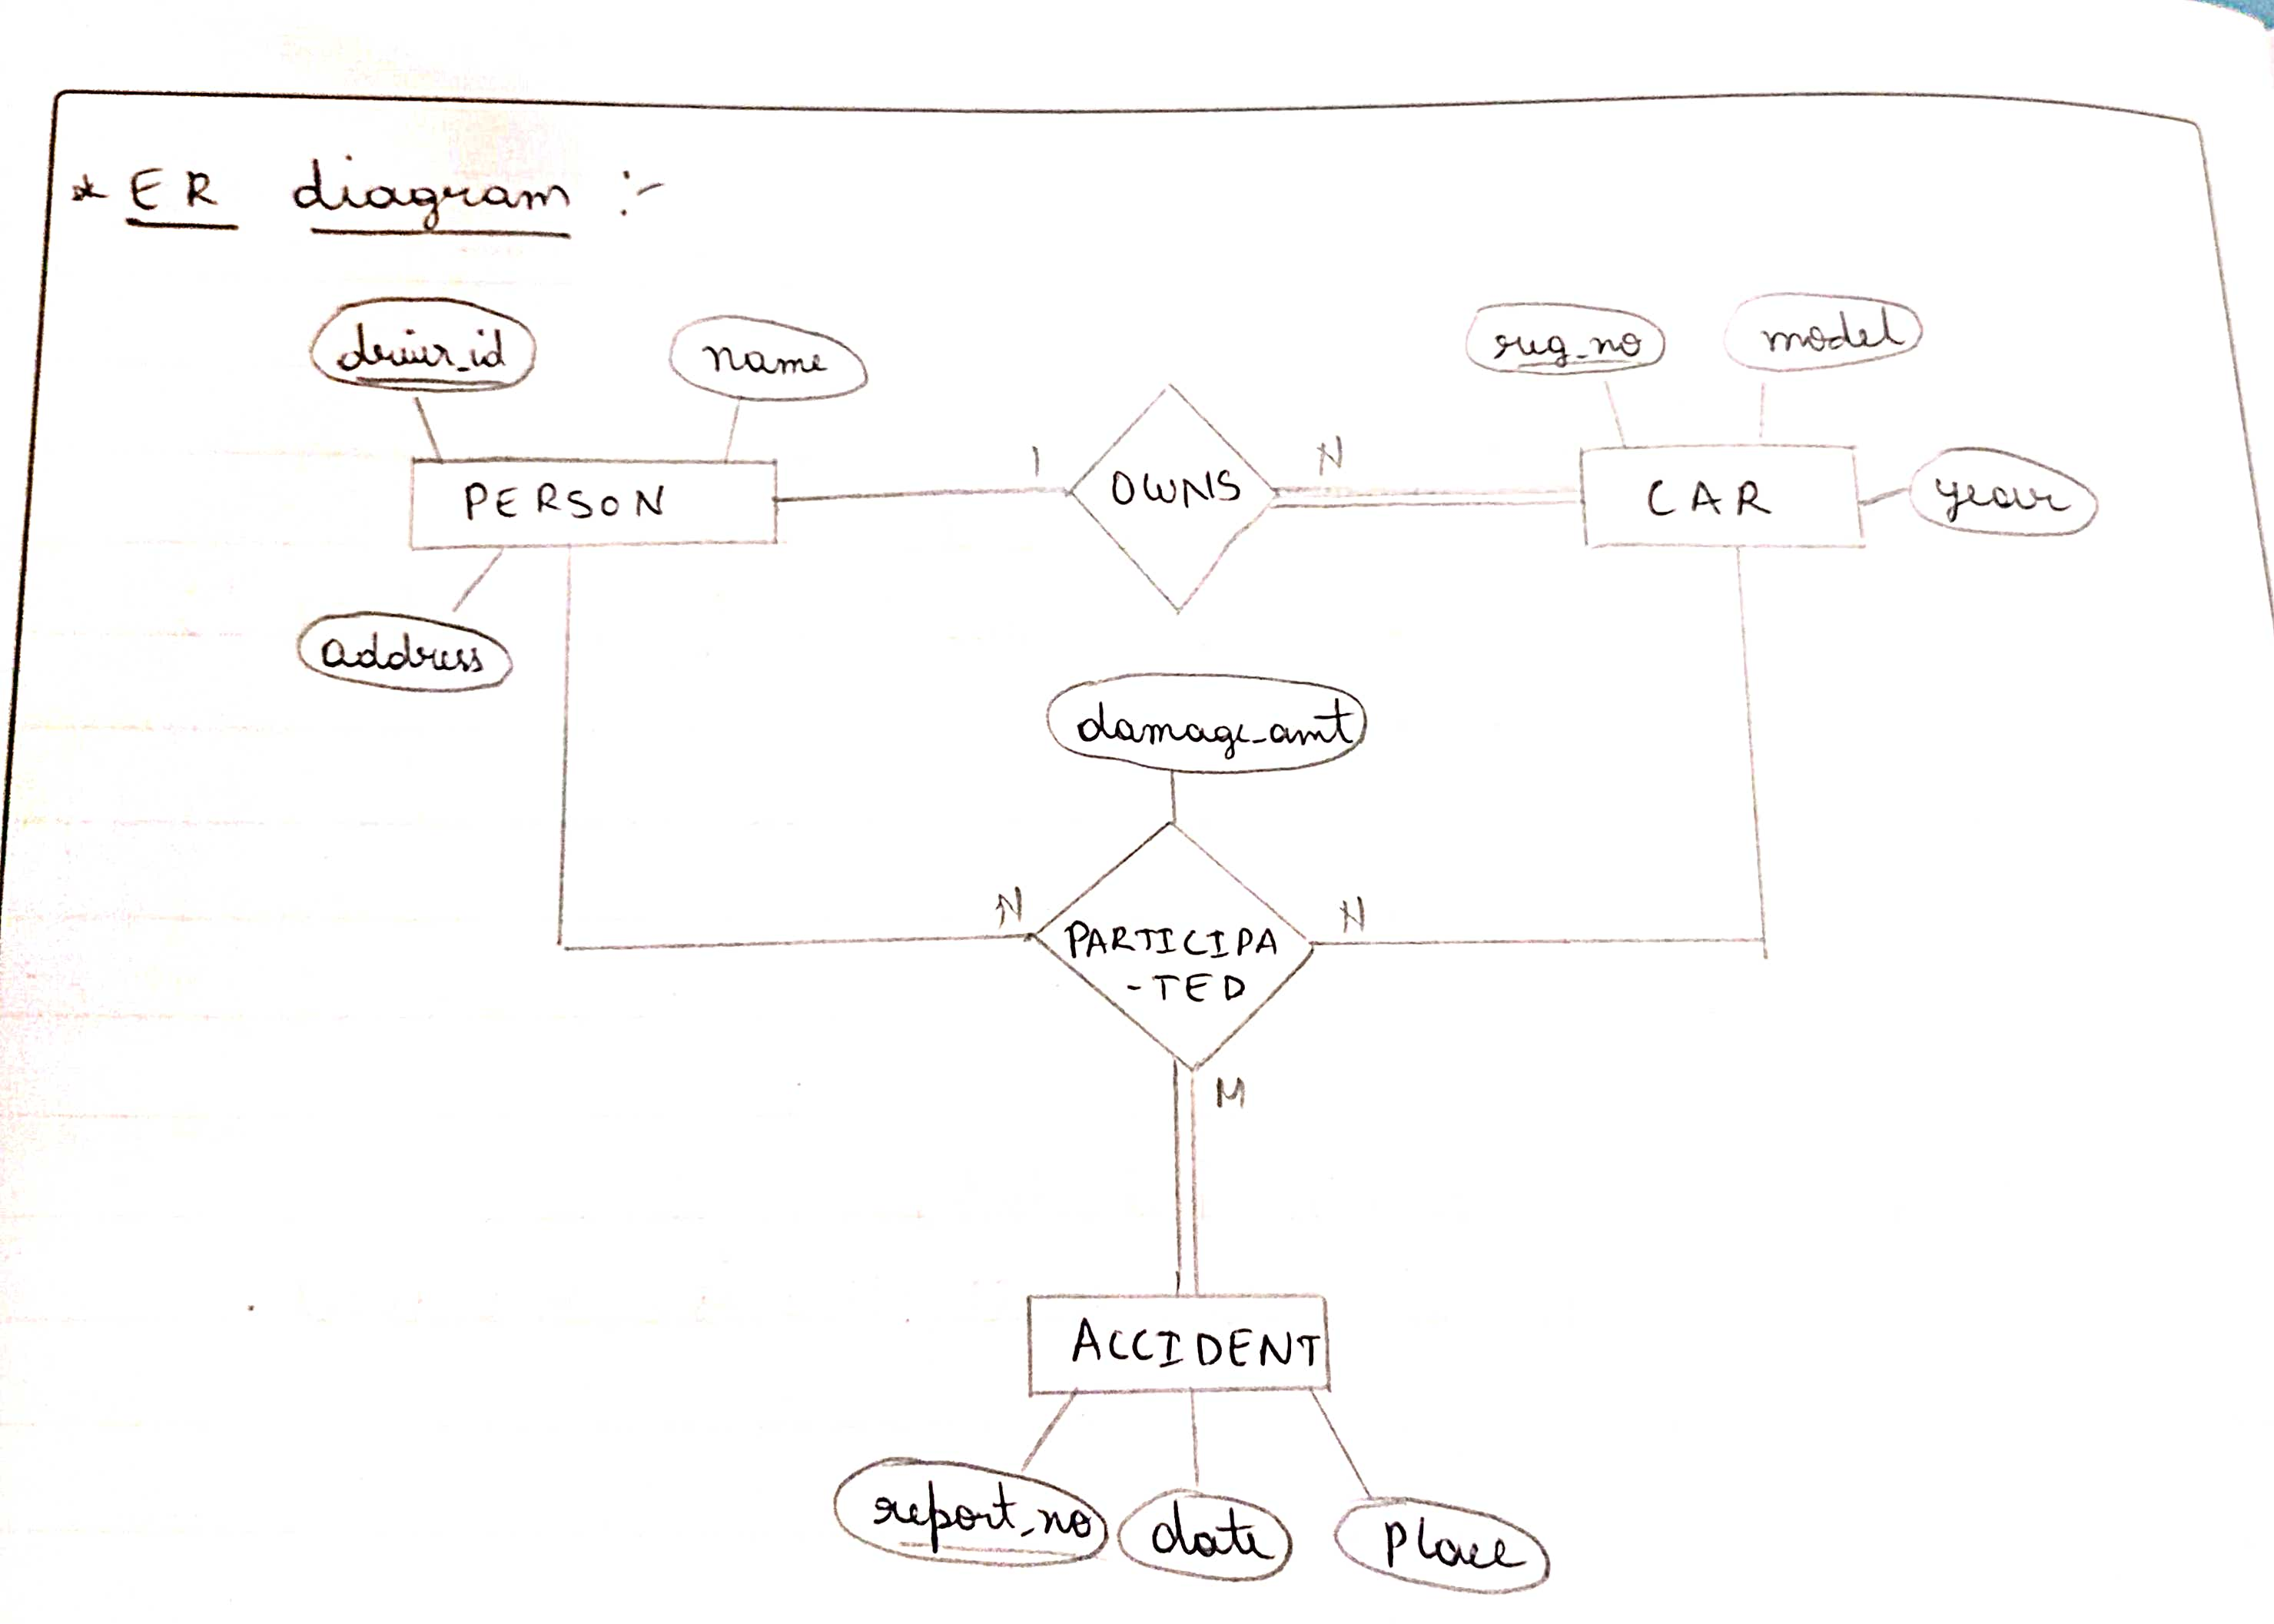 * ER diagram :-
driver_id
name
reg_no
model
PERSON
1
OWNS
N
CAR
year
address
damage_amt
N
PARTICIPA
-TED
N
M
ACCIDENT
report_no
date
Place